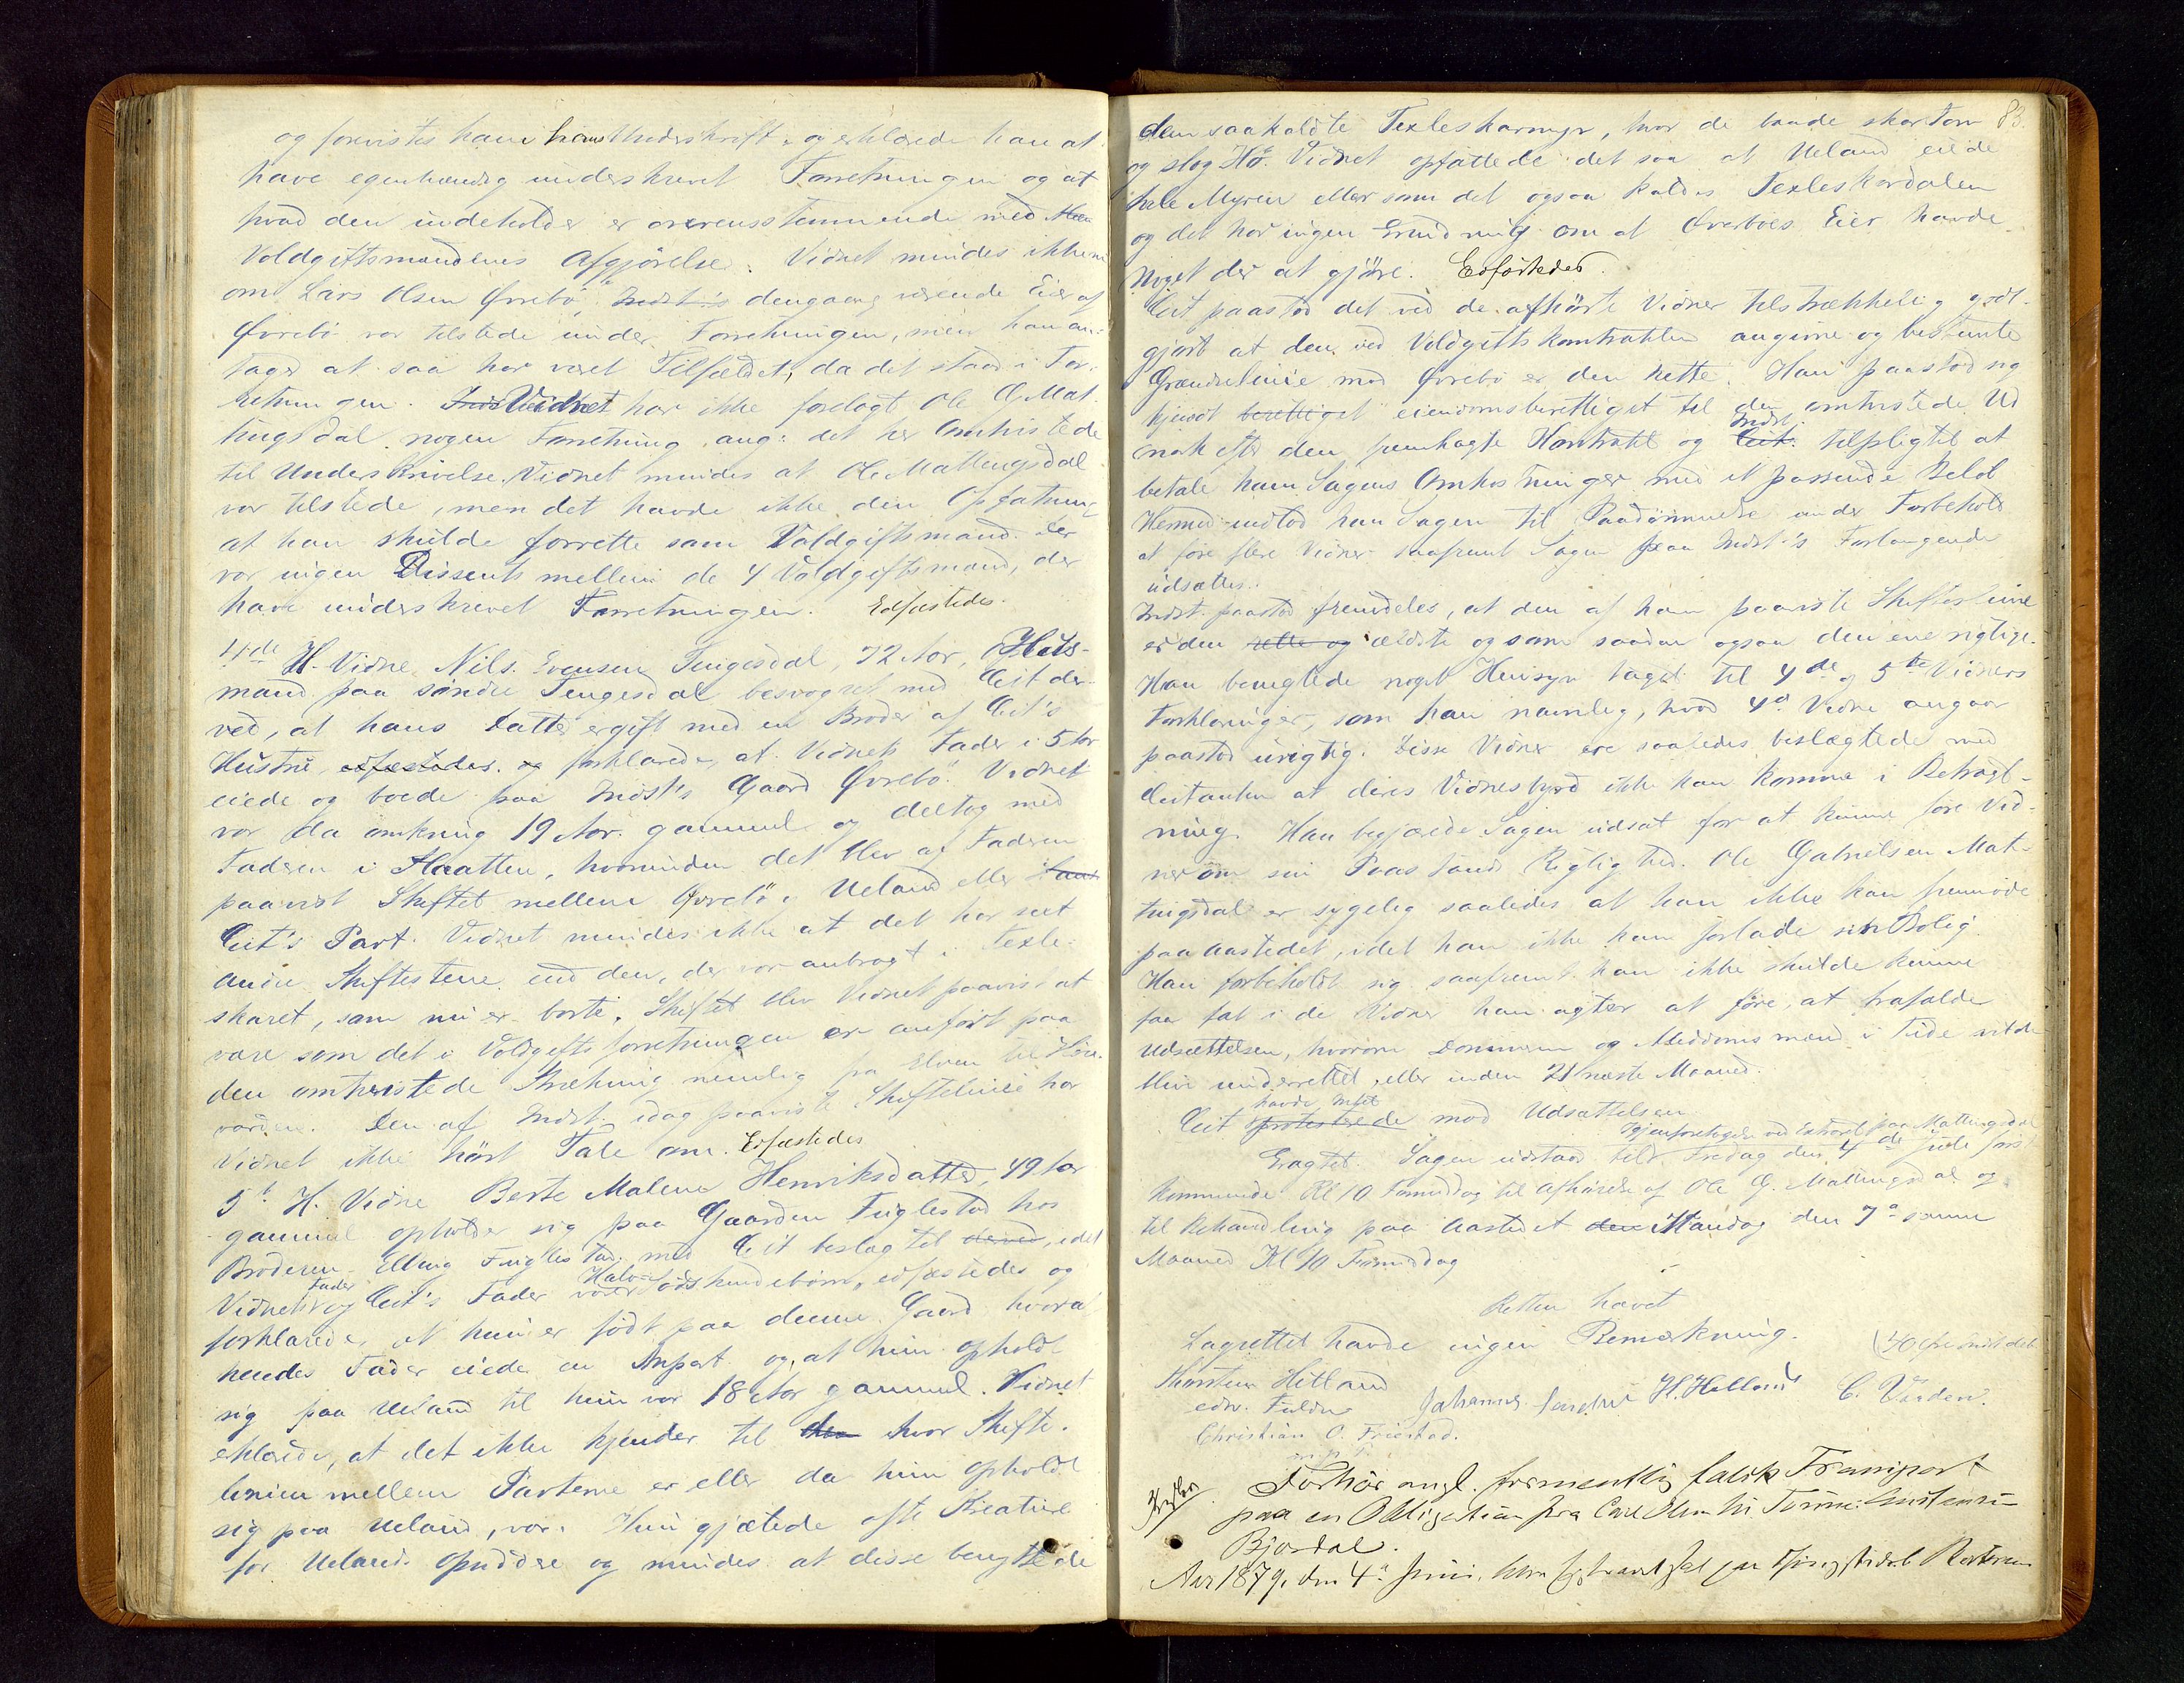 og forevistes ham hans Underskrift, og erklærede han at
have egenhændig underskrevet Forretningen og at
hvad den indeholder er overensstemmende med
Voldgiftsmændenes Afgjörelse. Vidnet mindes ikke
om Lars Olsen Övrebö, Indst's dengang værende Eier af
Övrebö var tilstede under Forretningen, men han an-
tager at saa har været Tilfældet, da det staar i For-
retningen. Vidnet har ikke forelagt Ole G. Mat-
tingsdal nogen Forretning ang: det her Omtvistede
til Underskrivelse. Vidnet mindes at Ole Mattingsdal
var tilstede, men det havde ikke den Opfatning
at han skulde forrette som Voldgiftsmand. Der
var ingen Dissents mellem de 4 Voldgiftsmænd, der
have underskrevet Forretningen. Edfæstedes.
4de H. Vidne Nils Evensen Tengesdal, 72 Aar, Huus-
mand paa söndre Tengesdal besvogret med Cit der-
ved, at hans Datter er gift med en Broder af Cit's
Hustru edfæstedes. og forklarede, at Vidnets Fader i 5 Aar
eiede og boede paa Indst's Gaard Övrebö. Vidnet
var da omkring 19 Aar gammel og deltog med
Faderen i Slaatten, hvorunder det blev af Faderen
paavist Skiftet mellem Övrebö og Ueland eller
Cit's Part. Vidnet mindes ikke at det har seet
andre Skiftestene end den, der var anbragt i Texle-
skaret, som nu er borte. Skiftet blev Vidnet paavist at
være som det i Voldgiftsforretningen er anfört paa
den omtvistede Strækning nemlig fra Elven til
varden. Den af Indst. idag paaviste Skiftelinie har
Vidnet ikke hört Tale om. Edfæstedes
5t H. Vidne Berte Malene Henriksdatter, 49 Aar
gammel opholder sig paa Gaarden Fuglestad hos
Broderen Elling Fuglestad, med Cit beslægtet derved, idet
Vidnets Fader og Cit's Fader vare Halvsödskendebörn, edfæstedes og
forklarede, at hun er födt paa denne Gaard hvoraf
hendes Fader eiede en Anpart og at hun opholdt
sig paa Ueland til hun var 18 Aar gammel. Vidnet
erklærede, at det ikke kjender til den hvor Skifte-
linien mellem Parterne er eller da hun opholdt
sig paa Ueland, var. Hun gjætede ofte Kreature
for Uelands Opsiddere og mindes at disse benyttede
83.
den saakaldte Texleskarmyr, hvor de baade skar Torv
og slog Hö. Vidnet opfattede det saa at Ueland eiede
hele Myren eller som det ogsaa kaldes Texleskardalen
og det har ingen Erindring om at Övreboes Eier havde
noget der at gjöre. Edfæstedes.
Cit paastod det ved de afhörte Vidner tilstrækkelig godt-
gjort at den ved Voldgiftskontrakten angivne og bestemte
Grændselinie mod Övrebö er den rette. Han paastod sig
kjendt berettiget eiendomsberettiget til den omtvistede Ud
mark efter den fremlagte Kontrakt og Cit. Indst. tilpligtet at
betale ham Sagens Omkostninger med et passende Belöb
Hermed indlod han Sagen til Paadömmelse under Forbehold
at före flere Vidner saafremt Sagen paa Indst's Forlangende
udsættes.
Indst. paastod fremdeles, at den af ham paaviste Skifteslinie
er den rette og ældste og som saadan ogsaa den ene rigtige.
Han benegtede noget Hensyn taget til 4de og 5te Vidners
Forklaringer, som han nemlig, hvad 4de Vidne angaar
paastod urigtig. Disse Vidner ere saaledes beslægtede med
Citanten at deres Vidnesbyrd ikke kan komme i Betragt-
ning. Han begjærede Sagen udsat for at kunne före Vid-
ner om sin Paastands Rigtighed. Ole Gabrielsen Mat-
tingsdal er sygelig saaledes at han ikke kan fremmöde
paa Aastedet, idet han ikke kan forlade sin Bolig.
Han forbeholdt sig saafremt han ikke skulde kunne
faa fat i de Vidner han agter at före, at frafalde
Udsættelsen, hvorom Dommeren og Meddomsmænd i Tide vilde
blive underrettet, eller inden 21 næste Maaned.
Cit protesterede havde Intet mod Udsættelsen
Eragtet. Sagen udstaar til Gjenforetagelse ved Extraret paa Mattingsdal Fredag den 4de Juli först
kommende Kl 10 Formiddag til Afhörelse af Ole G. Mattingsdal og
til Behandling paa Aastedet den Mandag den 7de samme
Maaned Kl 10 Formiddag
Retten hævet
Lagrettet havde ingen Bemærkning.
Thorsten Hetland
Johannes H. Helland C. Vaaden
Christian O. Friestad.
Forhör angl. formentlig falsk Transport
paa en Obligation fra Carl Olsen til Tönnes
Bjordal.
Aar 1879, den 4de Juni, blev